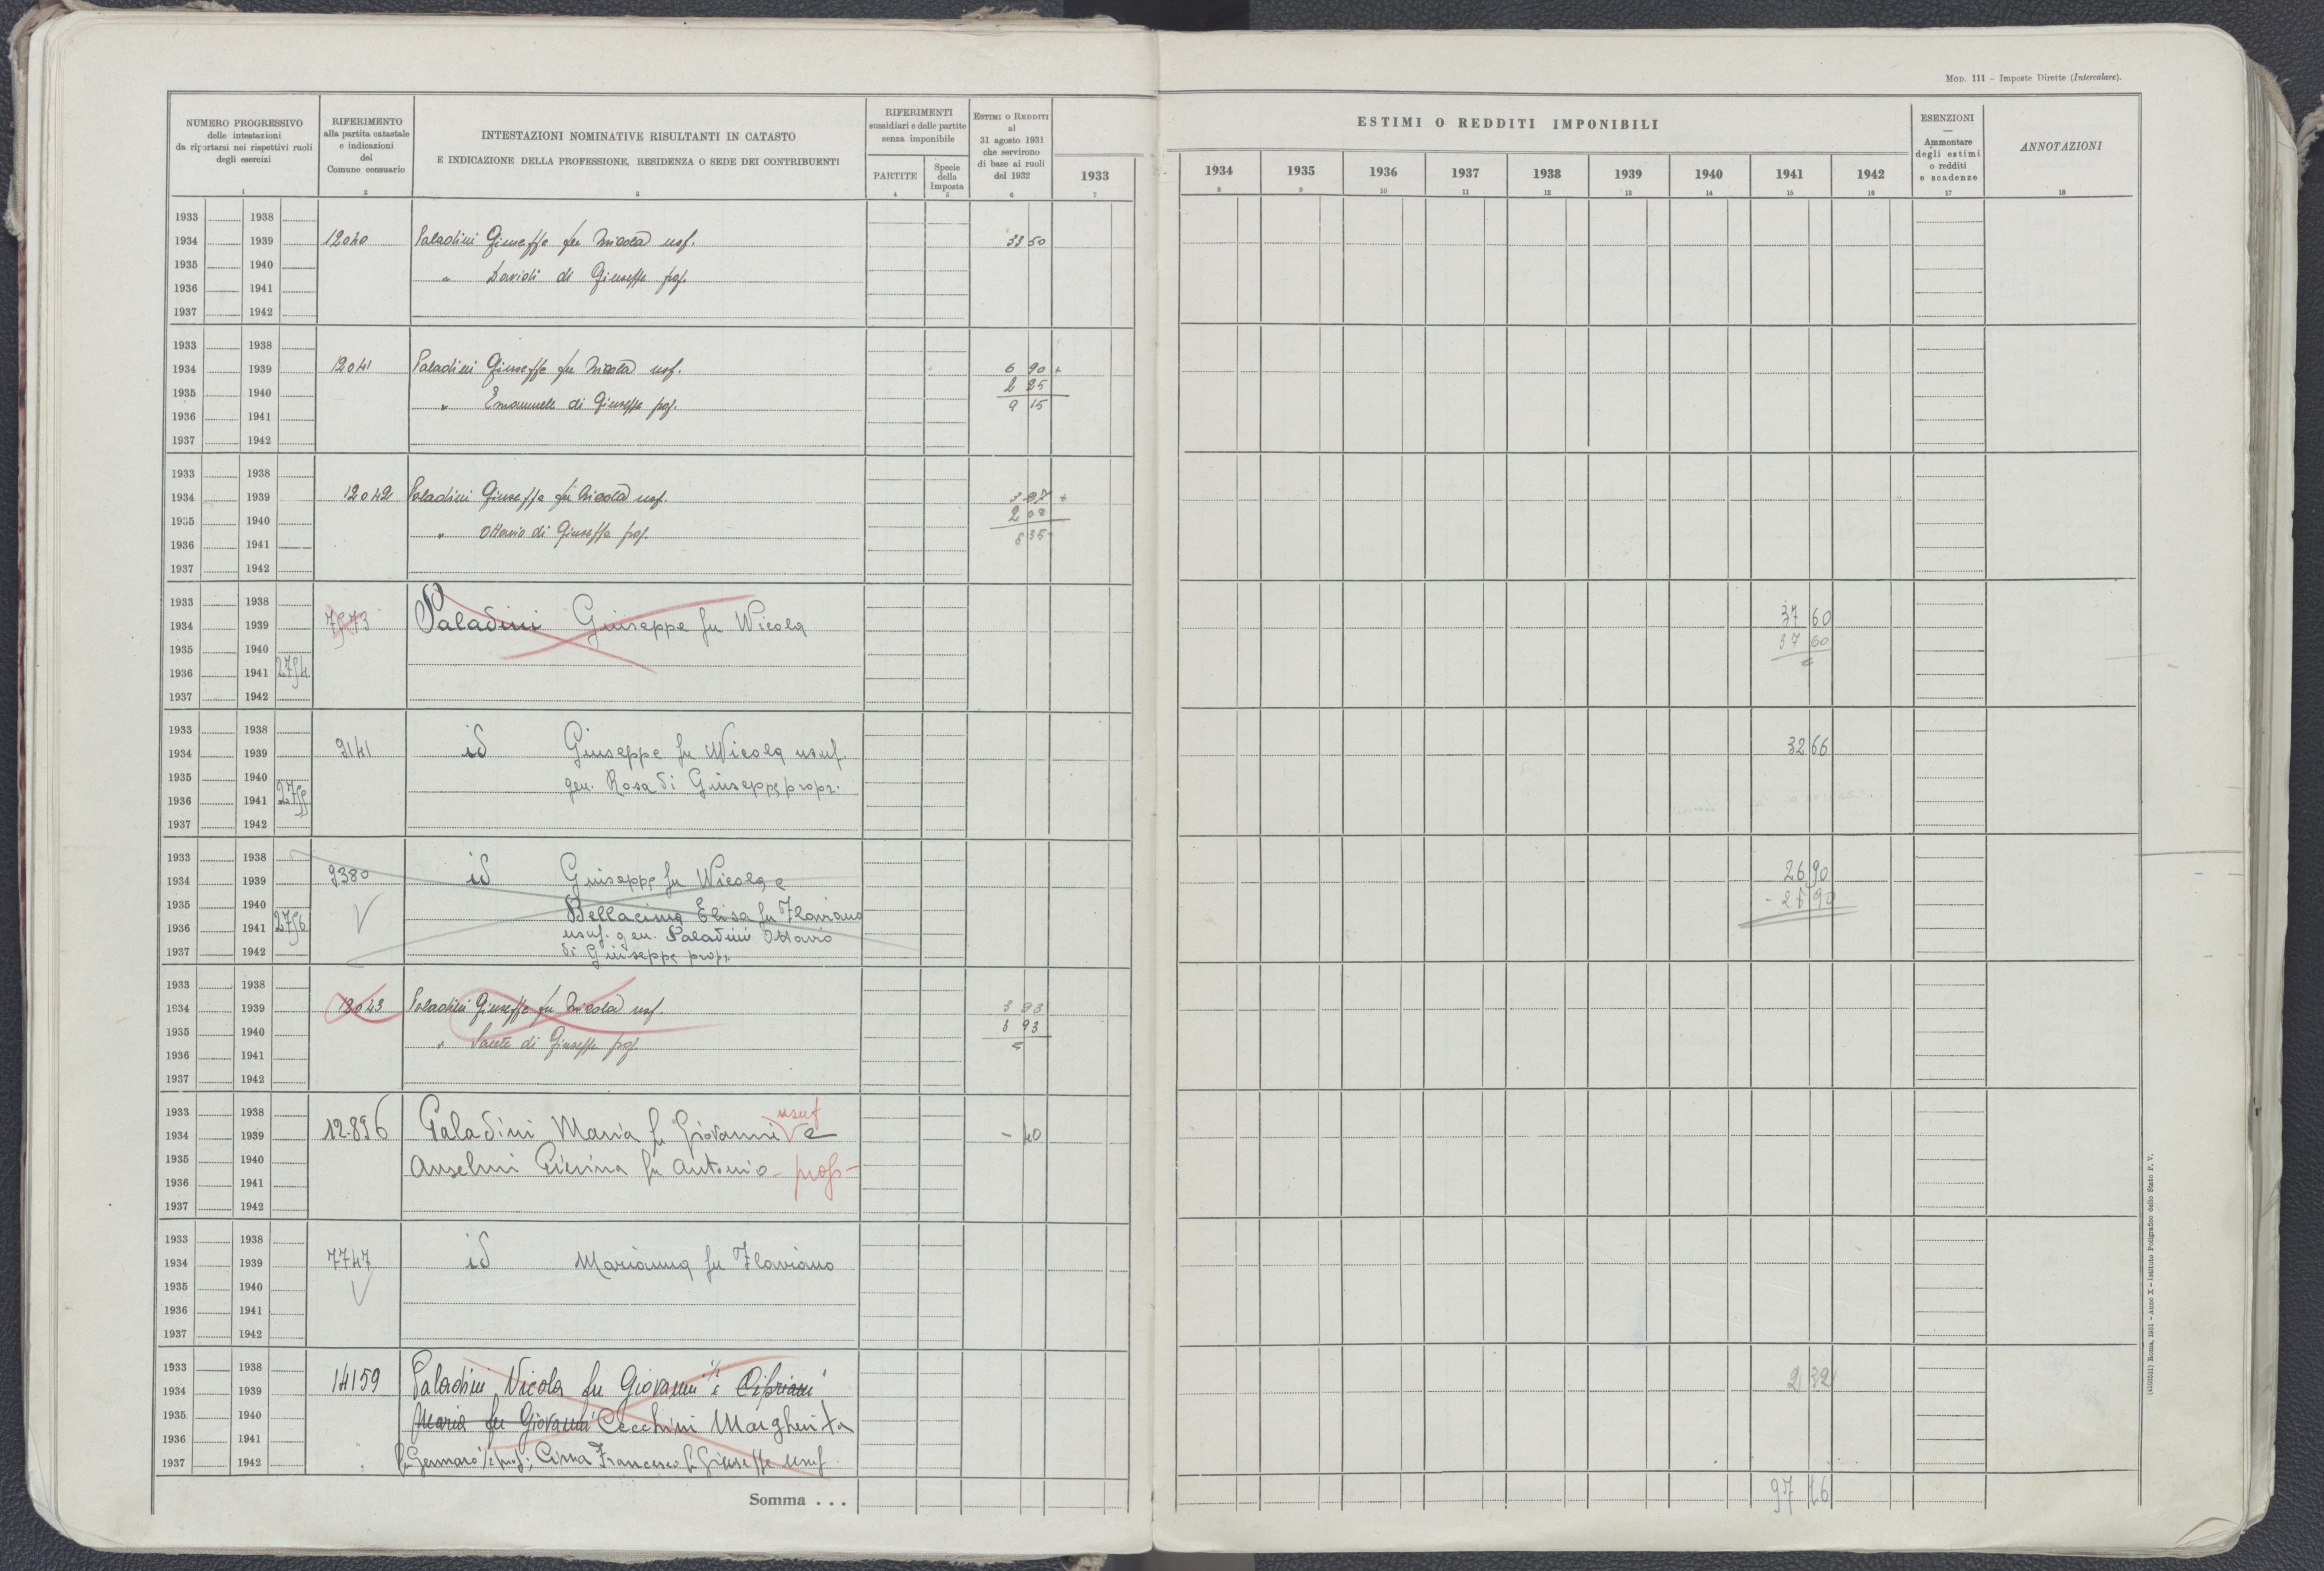 Mod. 111 - Imposte Dirette (Intercalare).
NUMERO PROGRESSIVO
delle intestazioni
da riportarsi nei rispettivi ruoli
degli esercizi
RIFERIMENTO
alla partita catastale
e indicazioni
del
Comune censuario
INTESTAZIONI NOMINATIVE RISULTANTI IN CATASTO
E INDICAZIONE DELLA PROFESSIONE, RESIDENZA O SEDE DEI CONTRIBUENTI
RIFERIMENTI
sussidiari e delle partite
senza imponibile
PARTITE
Specie
della
Imposta
Estimi o Redditi
al
31 agosto 1931
che servirono
di base ai ruoli
del 1932
ESTIMI O REDDITI IMPONIBILI
1933 1934 1935 1936 1937 1938 1939 1940 1941 1942
ESENZIONI
—
Ammontare
degli estimi
o redditi
e scadenze
ANNOTAZIONI
1 2 3 4 5 6 7 8 9 10 11 12 13 14 15 16 17 18
1933 1938
1934 1939 12040 Paladini Giuseppe fu Nicola usf. 33 50
1935 1940
" di Giuseppe prop.
1936 1941
1937 1942
1933 1938
1934 1939 12041 Paladini Giuseppe fu Nicola usf. 6 90 +
1935 1940 2 25
" Emanuele di Giuseppe prop. 9 15
1936 1941
1937 1942
1933 1938
1934 1939 12042 Paladini Giuseppe fu Nicola usf. +
1935 1940 2 08
" Ottavio di Giuseppe prop.
1936 1941
1937 1942
1933 1938
1934 1939 7573 Paladini Giuseppe fu Nicola 37 60
1935 1940 37 60
1936 1941 2754
1937 1942
1933 1938
1934 1939 9141 id Giuseppe fu Nicola usuf. 32 66
1935 1940 gen. Rosa di Giuseppe propr.
1936 1941 2755
1937 1942
1933 1938
1934 1939 9380 id Giuseppe fu Nicola e 26 90
1935 1940 V Bellacima Elisa fu Flaviano - 26 90
1936 1941 2756 usuf. gen. Paladini Ottavio
1937 1942 di Giuseppe propr.
1933 1938
1934 1939 12043 Paladini Giuseppe fu Nicola usf. 3 93
1935 1940 3 93
" di Giuseppe prop.
1936 1941
1937 1942
1933 1938 usuf
1934 1939 12.896 Paladini Maria fu Giovanni V e - 40
1935 1940 Anselmi Pierina fu Antonio - prop -
1936 1941
1937 1942
1933 1938
1934 1939 7747 id Marianna fu Flaviano
1935 1940 V
1936 1941
1937 1942
1933 1938
1934 1939 14159 Paladini Nicola fu Giovanni ½ e Cipriani 2 32
1935 1940 Maria fu Giovanni Cecchini Margherita
1936 1941
1937 1942 fu Gennaro ½ prop; Cima Francesco fu Giuseppe usuf
Somma . . . 97
(4203531) Roma, 1931 - Anno X - Istituto Poligrafico dello Stato P. V.